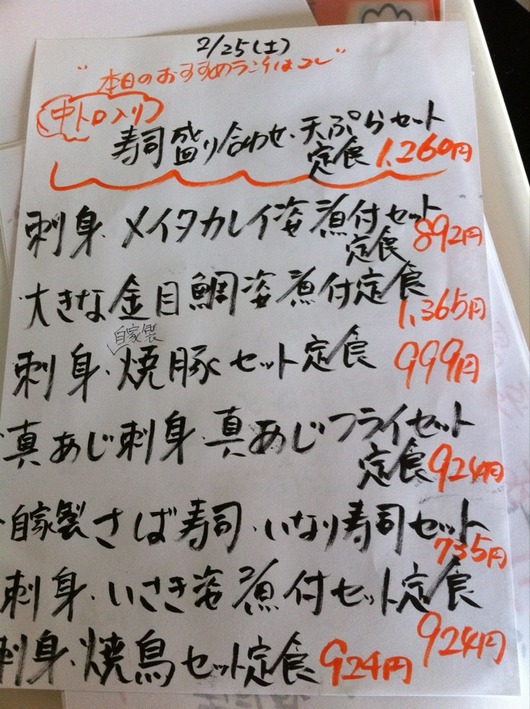 2/25(土)
"本日のおすすめランチはコレ"
中トロ入り
寿司盛り合わせ・天ぷらセット
定食 1,260円
刺身・メイタカレイ姿煮付セット
定食 892円
大きな金目鯛姿煮付定食
1,365円
自家製
刺身・焼豚セット定食 999円
真あじ刺身・真あじフライセット
定食 924円
・自家製さば寿司・いなり寿司セット
735円
刺身・いさき姿煮付セット定食
924円
刺身・焼鳥セット定食 924円